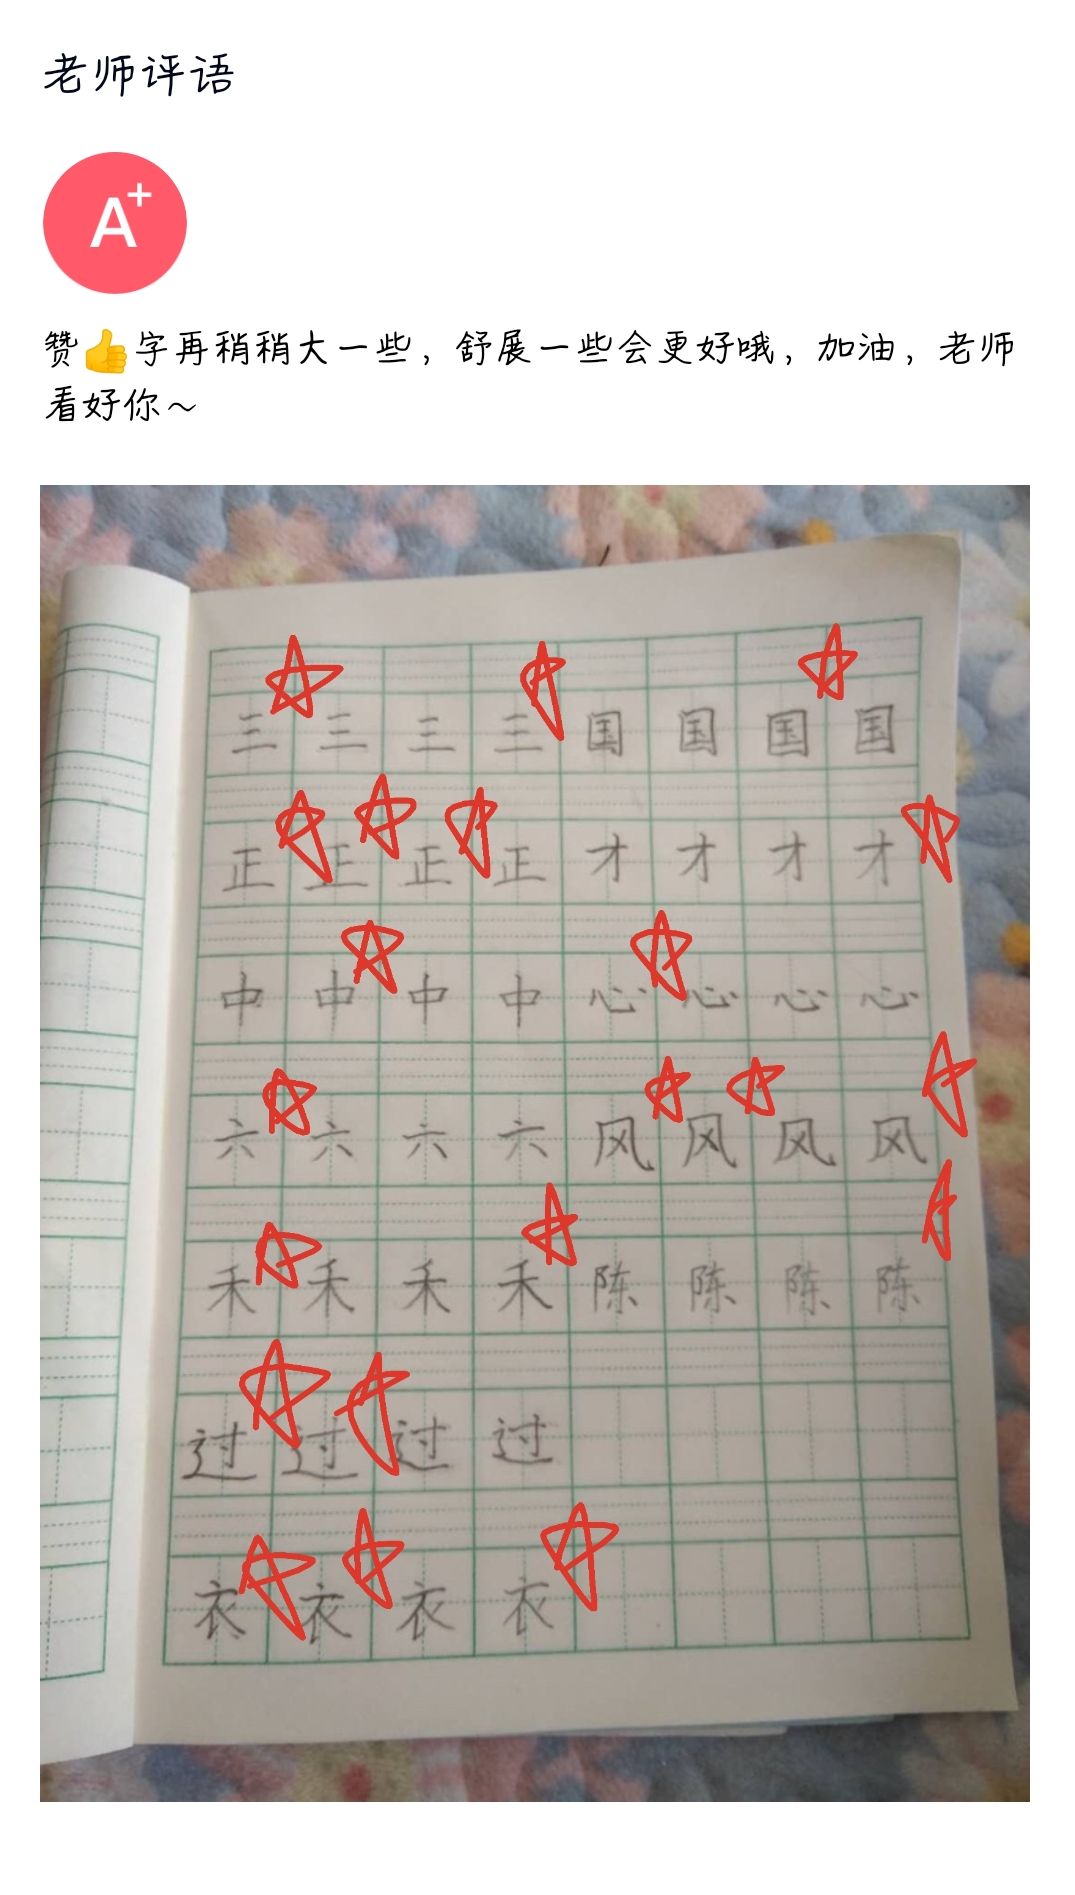 老师评语
A+
赞👍字再稍稍大一些，舒展一些会更好哦，加油，老师
看好你～
三三三三国国国国
正正正正才才才才
中中中中心心心心
六六六六风风风风
禾禾禾禾陈陈陈陈
过过过过
衣衣衣衣